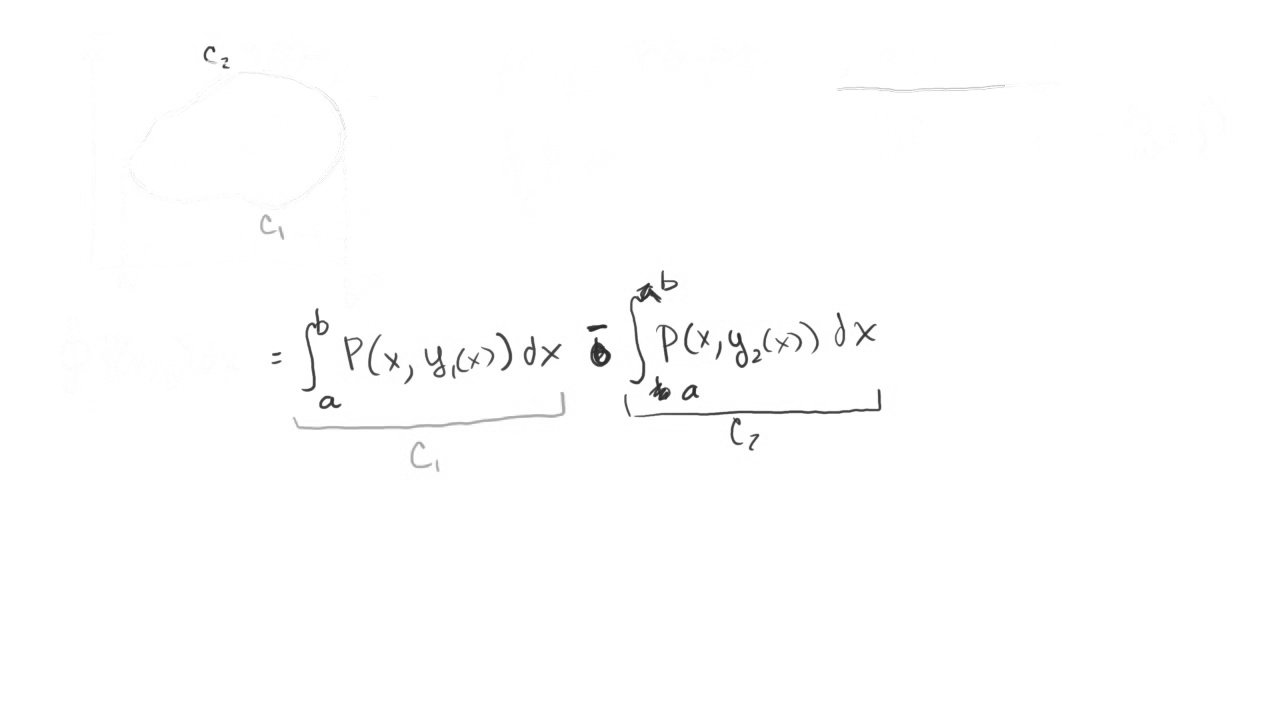 C₂
C₁
= ∫ₐᵇ P(x, y₁(x)) dx − ∫ₐᵇ P(x, y₂(x)) dx
C₁ C₂